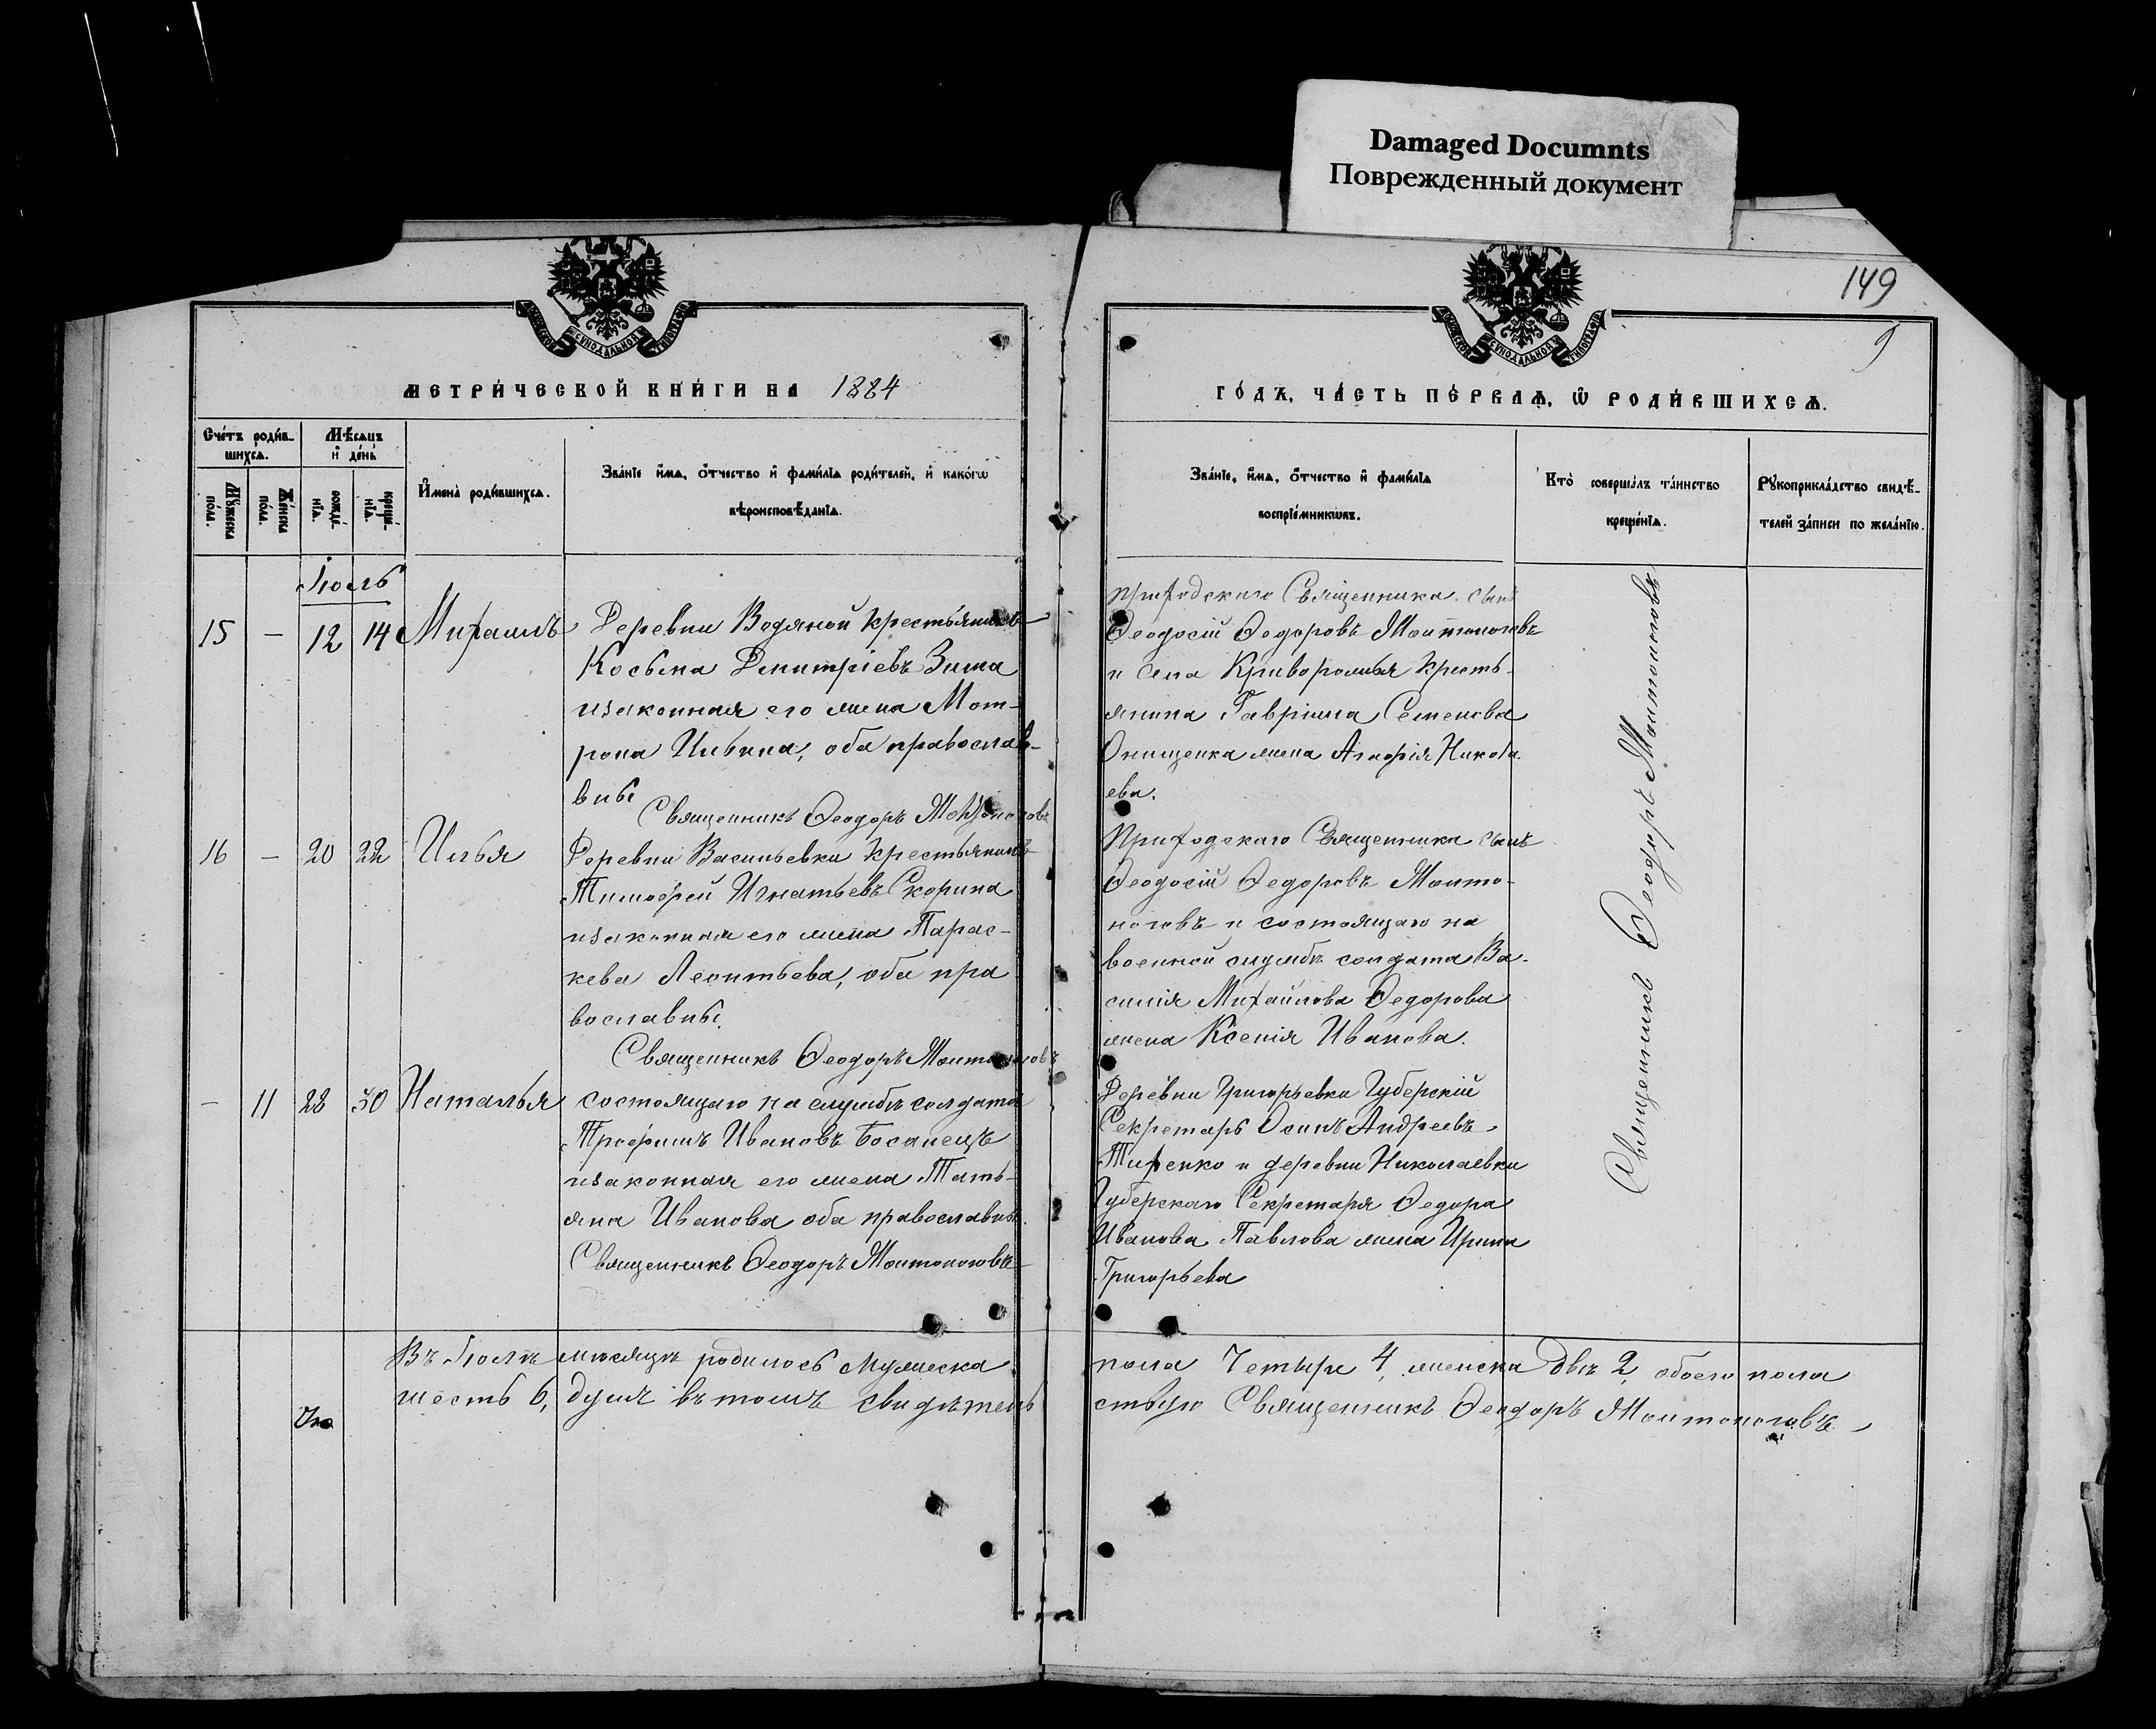 Damaged Documnts
Поврежденный документ
149
9
МЕТРИЧЕСКОЙ КНИГИ НА 1884
ГОДЪ, ЧАСТЬ ПЕРВАЯ, Ѡ РОДИВШИХСЯ.
Счетъ родив-
шихся.
Мѣсяцъ
и день
Мужеска
пола.
Женска
пола.
рожде-
нія.
креще-
нія.
Имена родившихся.
Званіе имя, отчество и фамилія родителей, и какогѡ
вѣроисповѣданія.
Званіе, имя, отчество и фамилія
воспріемникѡвъ.
Кто совершалъ таинство
крещенія.
Рукоприкладство свидѣ-
телей записи по желанію.
Іюль
15 — 12 14 Михаилъ
Деревни Водяной крестьянинъ
Косьма Димитріевъ Зима
и законная его жена Мот-
рона Ильина, оба православ-
вны
Священникъ Ѳеодоръ
приходскаго Священника сынъ
Ѳеодосій Ѳедоровъ
и села крестья-
янина Гавріила Семенова
Онищенка жена Агафія Никола-
ева.
16 — 20 22 Илья
Деревни Васильевки крестьянинъ
Тимофей Игнатьевъ Скорина
и законная его жена Парас-
кева Леонтьева, оба пра
вославны.
Священникъ Ѳеодоръ
Приходскаго Священника сынъ
Ѳеодосій Ѳедоровъ
и состоящаго на
военной службѣ солдата Ва-
силія Михайлова Ѳедорова
жена Ксенія Иванова.
— 11 28 30 Наталья
состоящаго на службѣ солдата
Трофимъ Ивановъ
и законная его жена Тать-
яна Иванова оба православны.
Священникъ Ѳеодоръ
Деревни Григорьевки Губерскій
Секретарь Осипъ Андреевъ
и деревни Николаевки
Губерскаго Секретаря Ѳедора
Иванова Павлова жена Ирина
Григорьева
Священникъ Ѳеодоръ
Въ Іюлѣ мѣсяцѣ родилось мужеска пола Четыре 4, женска двѣ 2, обоего пола
шесть 6, душъ въ томъ свидѣтель ствую Священникъ Ѳеодоръ